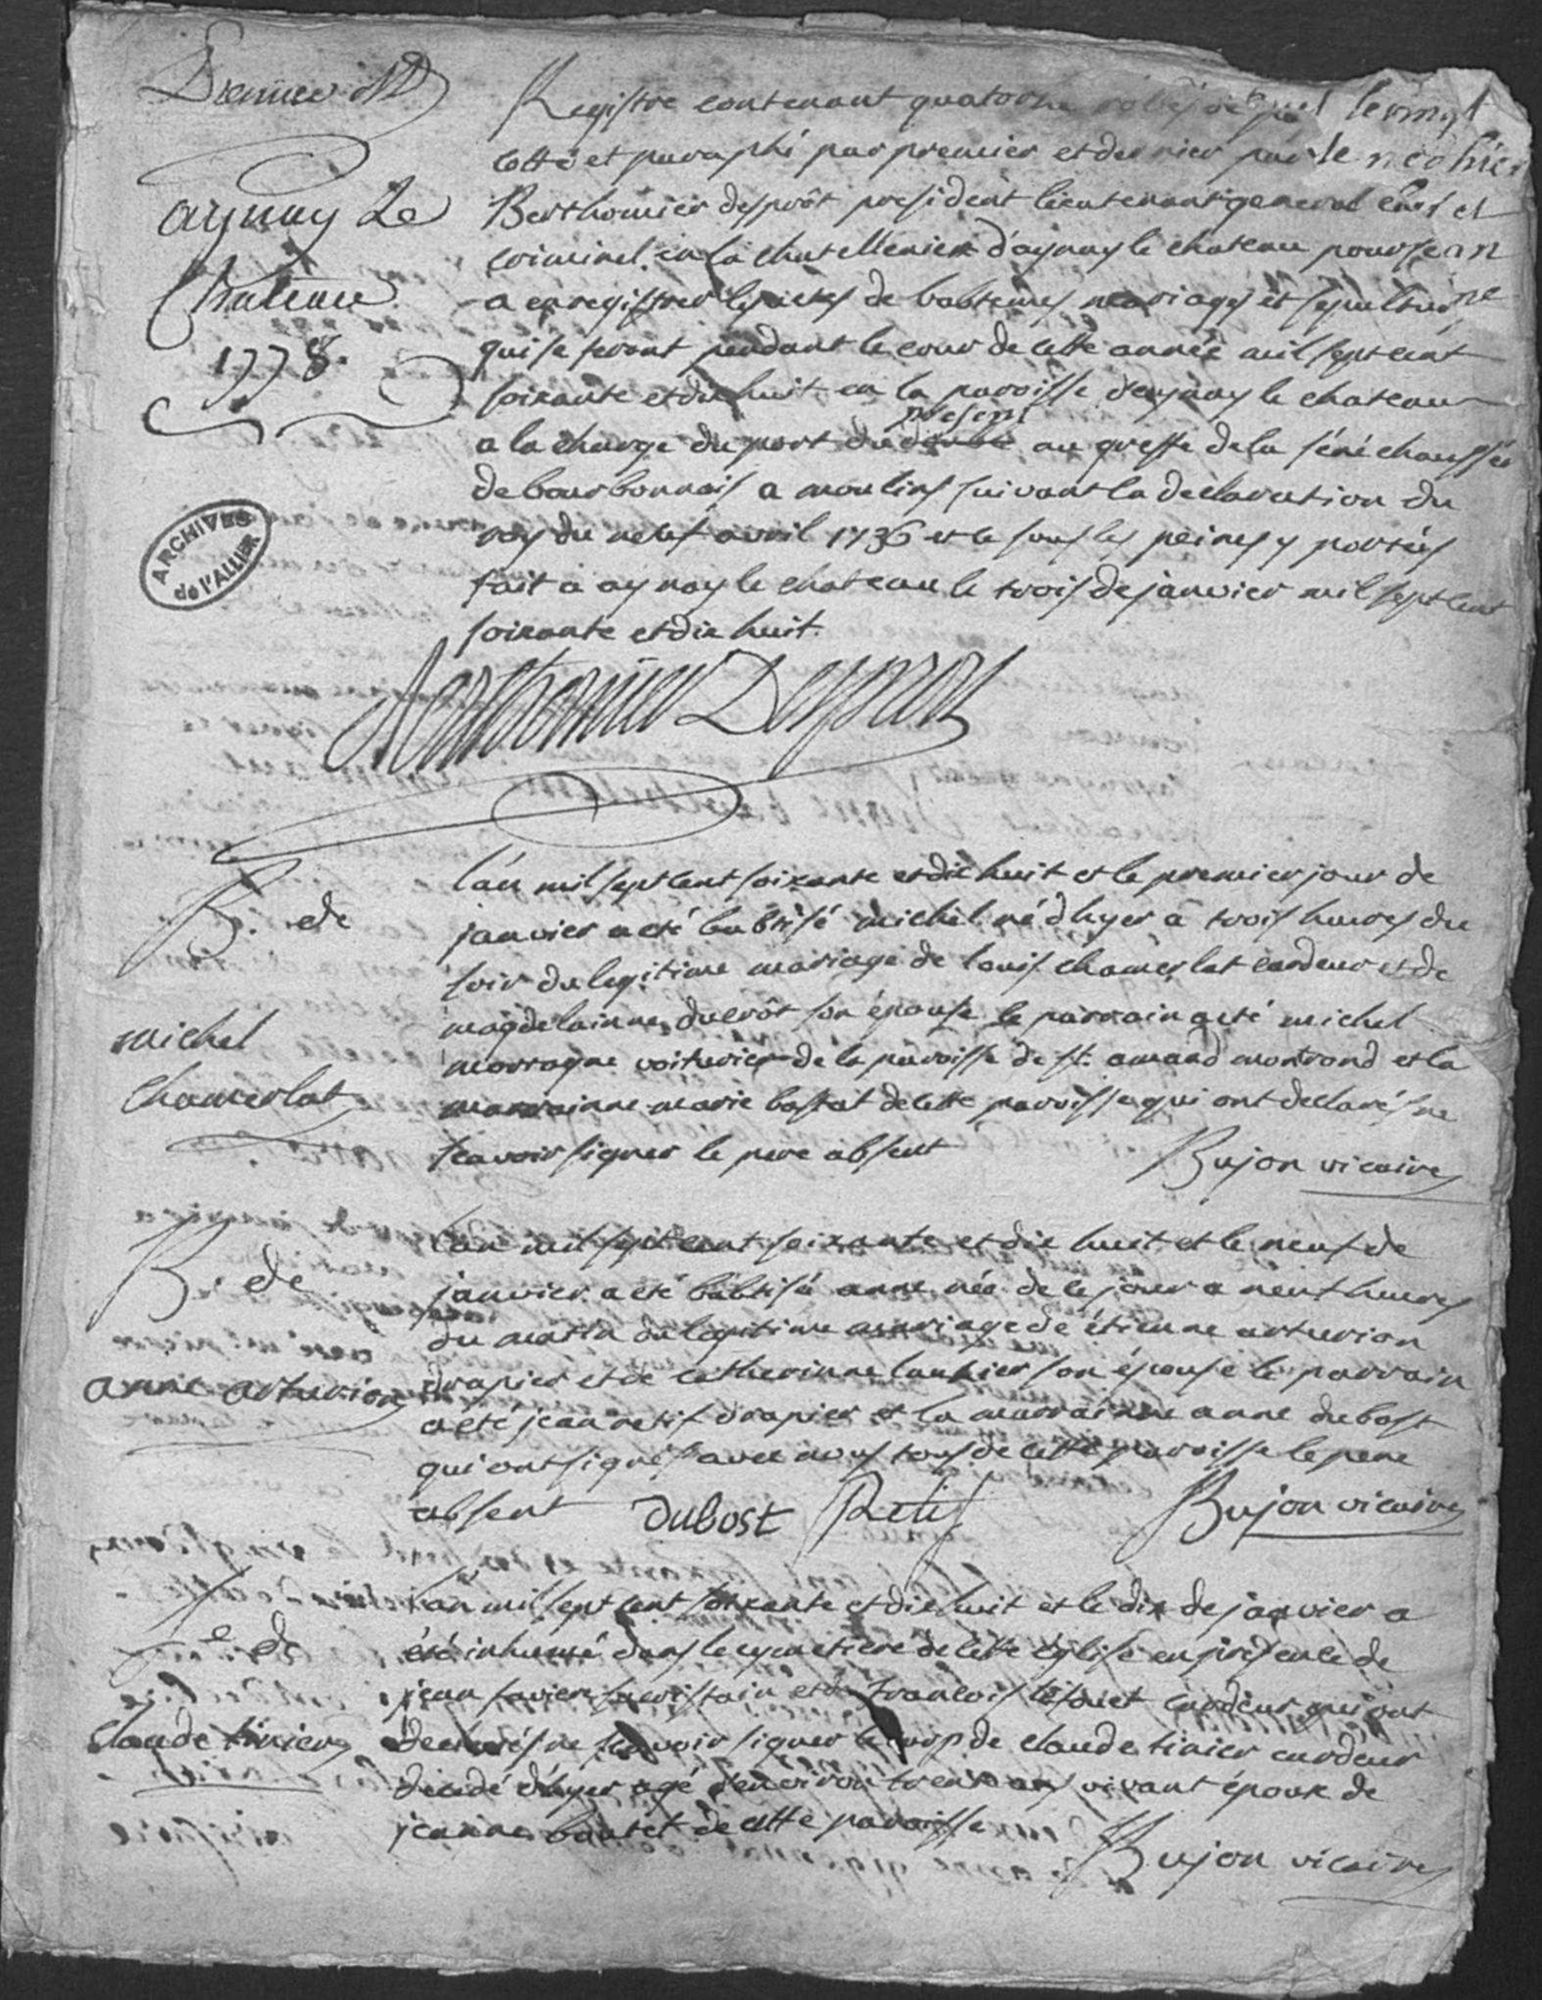 Premier
Registre contenant quatorze
cotté et paraphé par premier et dernier par
aynay Le
Chateau
1778.
Berthomier desprôt president lieutenant general et
criminel en la chatellenie d'aynay le chateau pour
a enregistrer les actes de babtemes mariages et sepulture
qui se feront pendant le cour de cette année mil sept cent
soixante et dix huit en la paroisse d'aynay le chateau
present
a la charge du port du au greffe de la sénéchaussée
de bourbonnois a moulins suivant la declaration du
roy du neuf avril 1736 et le sous les peines y portées
fait a aynay le chateau le trois de janvier mil sept cent
soixante et dix huit.
ARCHIVES
de l'ALLIER
Berthomier Desprots
B. de
michel
chamerlat
l'an mil sept cent soixante et dix huit et le premier jour de
janvier a eté babtisé michel né d'hyer a trois heures du
soir du legitime mariage de louis chamerlat cardeur et de
magdelainne ducrôt son épouse le parrain a eté michel
voiturier de la paroisse de st. amand montrond et la
marrainne marie bastat de cette paroisse qui ont declarés ne
scavoir signer le pere absent
Bujon vicaire
B. de
anne arturion
l'an mil sept cent soixante et dix huit et le neuf de
janvier a eté babtisé anne née de ce jour a neuf heures
du matin du legitime mariage de étienne arturion
drapier et de catherinne son épouse le parrain
a eté jean retif drapier et la marrainne anne dubost
qui ont signés avec nous tous de cette paroisse le pere
absent
Dubost Retif Bujon vicaire
S.e de
Claude tixier
l'an mil sept cent soixante et dix huit et le dix de janvier a
été inhumé dans le cymetiere de cette église en présence de
jean sacristain et de francois cardeur qui ont
declarés ne scavoir signer le corp de claude tixier cardeur
decedé d'hyer agé d'environ trente ans vivant époux de
jeanne de cette paroisse
Bujon vicaire